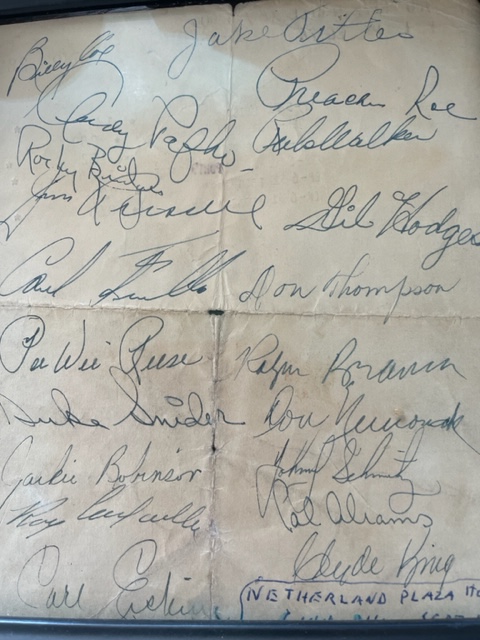 Jake Pitler
Billy Cox
Preacher Roe
Andy Pafko
Rube Walker
Rocky Bridges
Jim Russell
Gil Hodges
Carl Furillo
Don Thompson
Pee Wee Reese
Ralph Branca
Duke Snider
Don Newcombe
Jackie Robinson
Johnny Schmitz
Roy Campanella
Cal Abrams
Clyde King
Carl Erskine
NETHERLAND PLAZA